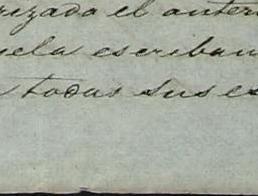 rizado el anteri
uela escriban
todas sus es